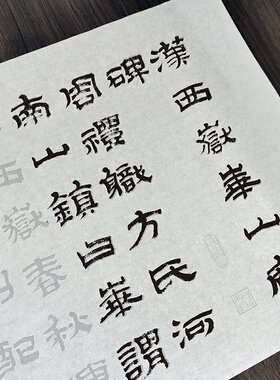 漢西嶽華山廟
碑
周禮職方氏河
南山鎮曰華謂
西嶽春秋
配